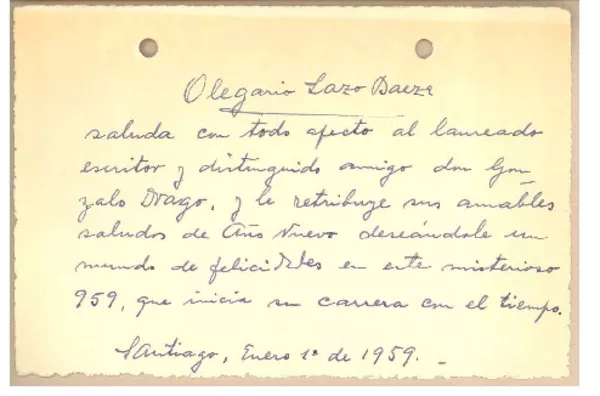 Olegario Lazo Baeza
saluda con todo afecto al laureado
escritor y distinguido amigo don Gon
zalo Drago, y le retribuye sus amables
saludos de Año Nuevo deseándole un
mundo de felicidades en este misterioso
959, que inicia su carrera con el tiempo.
Santiago, Enero 1º de 1959.-